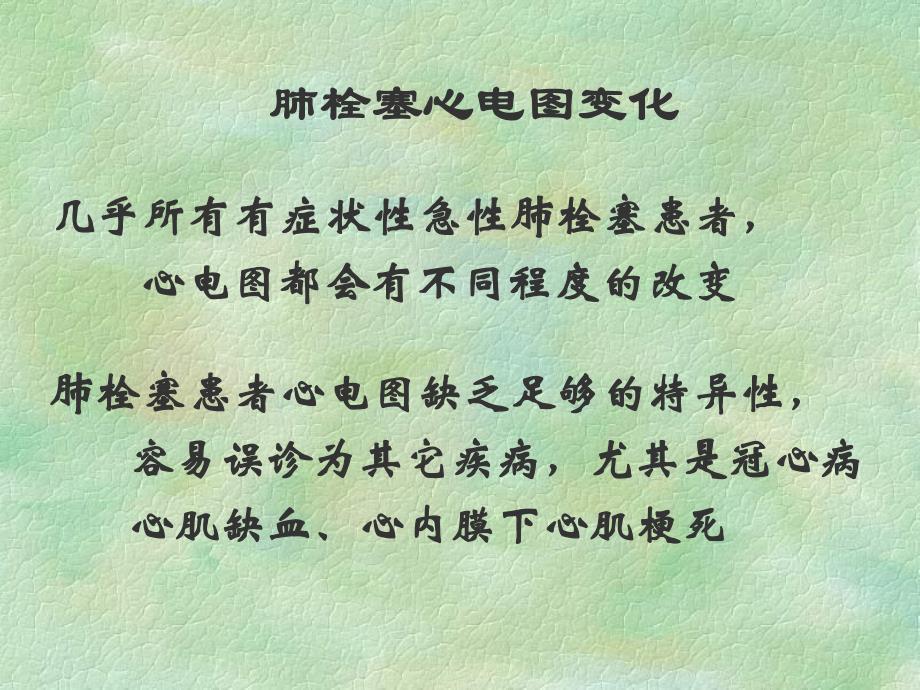 肺栓塞心电图变化
几乎所有有症状性急性肺栓塞患者，
心电图都会有不同程度的改变
肺栓塞患者心电图缺乏足够的特异性，
容易误诊为其它疾病，尤其是冠心病
心肌缺血、心内膜下心肌梗死